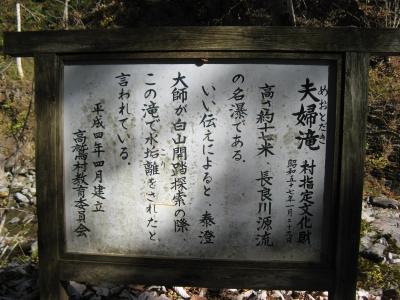 夫婦滝 村指定文化財
めおとだき
昭和五十七年一月二十九日
高さ約十七米 長良川源流
の名瀑である。
いい伝えによると、泰澄
大師が白山開踏探索の際
この滝で水垢離をされたと
言われている。
平成四年四月建立
高鷲村教育委員会